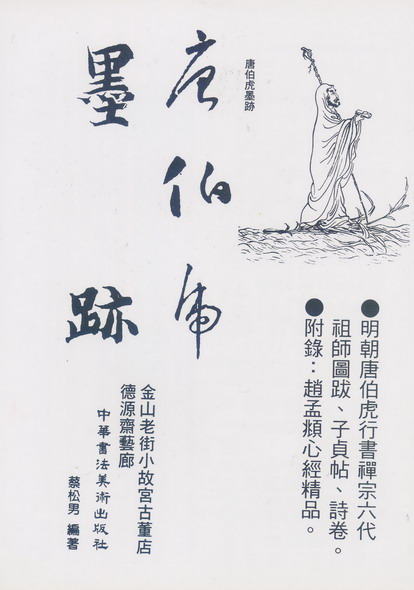 ●明朝唐伯虎行書禪宗六代
祖師圖跋、子貞帖、詩卷。
●附錄：趙孟頫心經精品。
唐伯虎墨跡
唐伯虎
墨跡
金山老街小故宮古董店
德源齋藝廊
中華書法美術出版社
蔡松男 編著